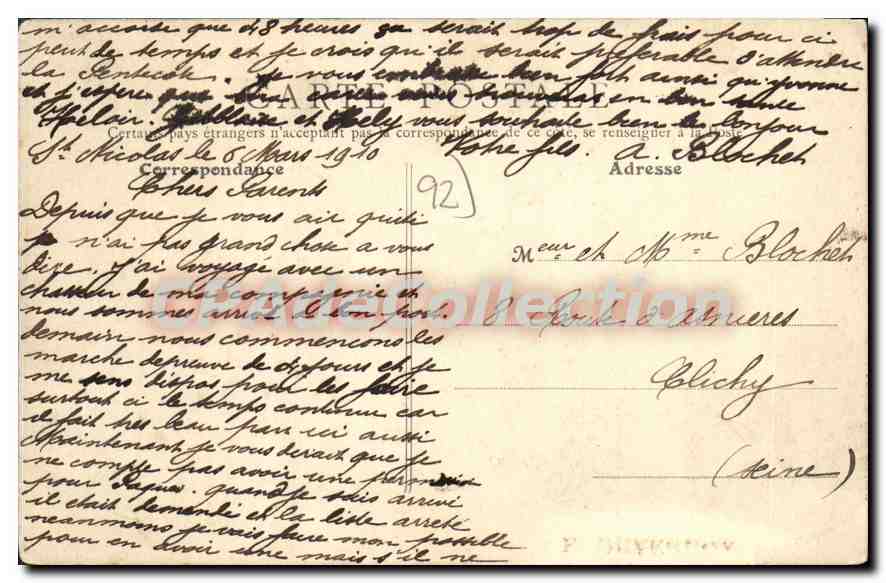 m'accorde que 48 heures sa serait trop de frais pour ci
peut de temps et je crois qu'il serait preferable d'attendre
la Pentecote. Je vous embrasse bien fort ainsi qu'yvonne
et j'espere que
CARTE POSTALE
en bon sante
et Hely vous souhaite bien le bonjour
Certains pays étrangers n'acceptant pas la correspondance de ce côté, se renseigner à la Poste
St Nicolas le 8 Mars 1910
Votre fils. A. Blochet
Correspondance
Chers Parents
Depuis que je vous ait quité
je n'ai pas grand chose a vous
dire. J'ai voyagé avec un
chasseur de ma compagnie et
nous sommes arrivé a bon port.
demain nous commencons les
marche depreuve de 4 jours et je
me sens dispos pour les faire
surtout ci le temps continue car
il fait tres beau par ici aussi
Maintenant je vous dirait que je
ne compte pas avoir une permission
pour Paques. quand je suis arrivé
il etait demandé et la liste arreté
neanmoins je vais faire mon possible
pour en avoir une mais s'il ne
92
Adresse
Meur et Mme Blochet
8 Route d'Asnieres
Clichy
(Seine)
CPADeCollection